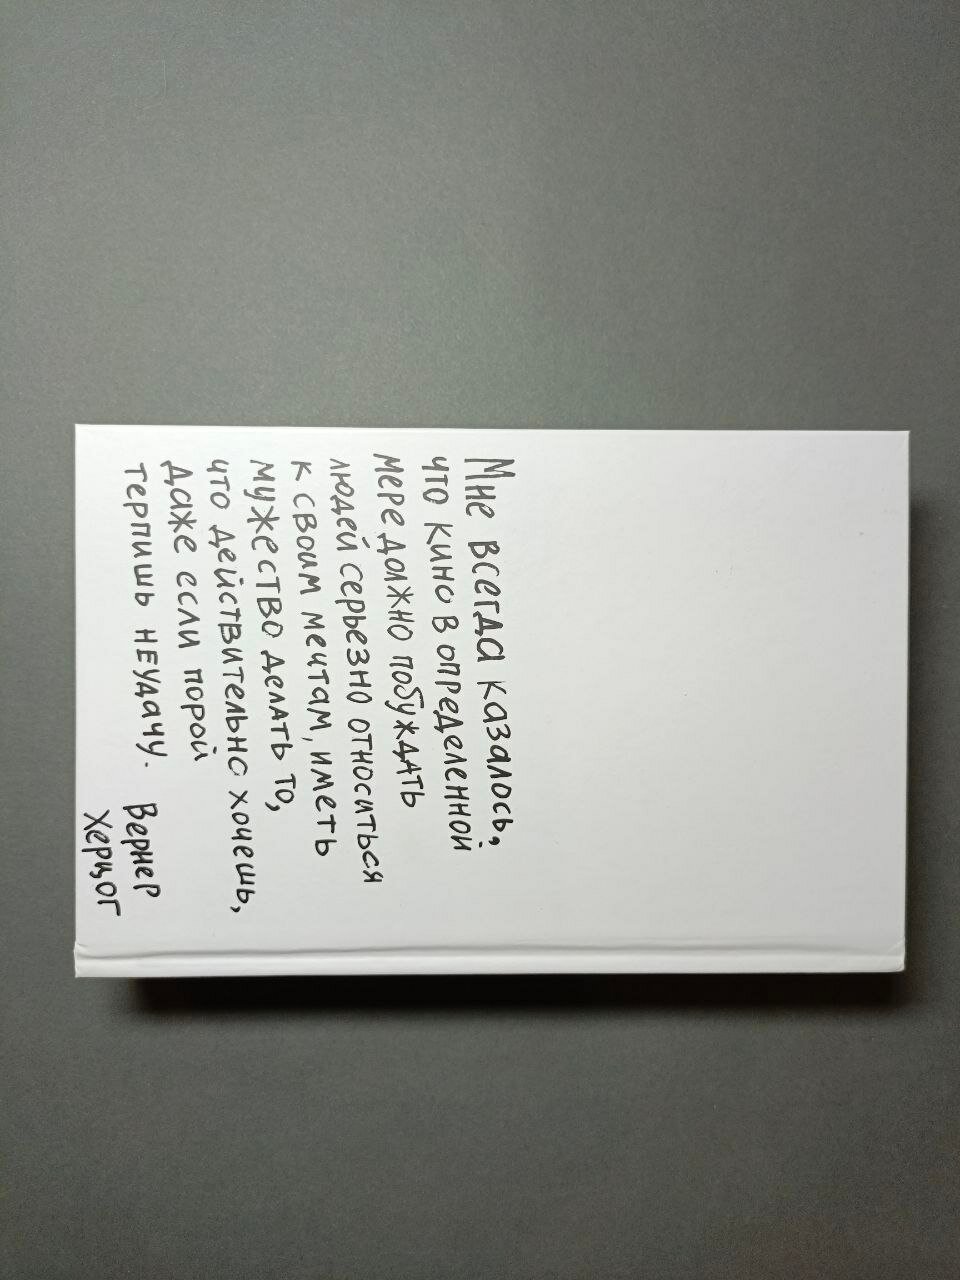 Мне всегда казалось,
что кино в определенной
мере должно побуждать
людей серьезно относиться
к своим мечтам, иметь
мужество делать то,
что действительно хочешь,
даже если порой
терпишь неудачу.
Вернер
Херцог